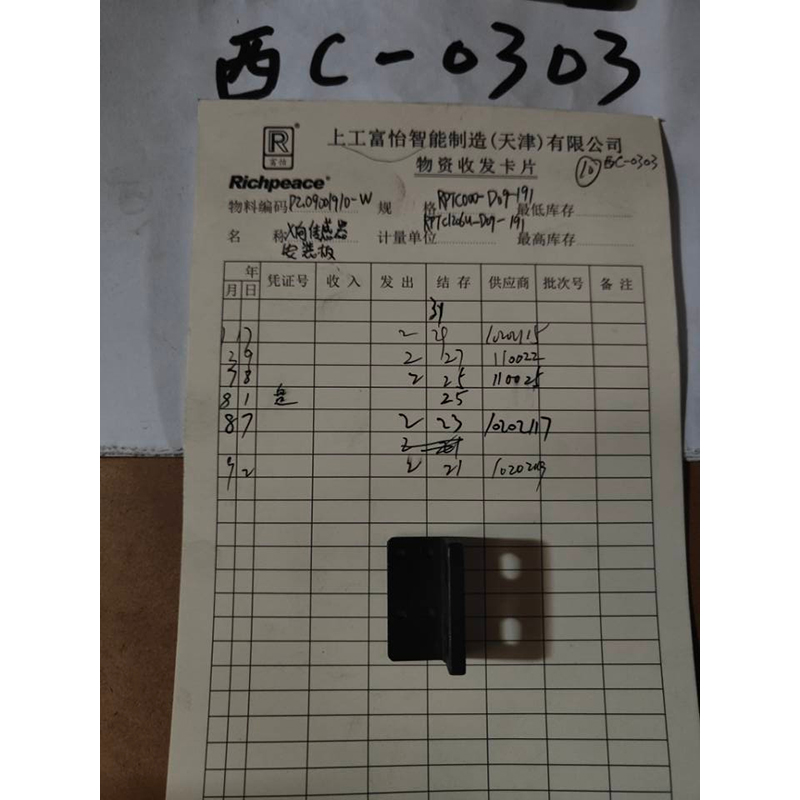 西C-0303
上工富怡智能制造(天津)有限公司
R
富怡
物资收发卡片
⑩ 西C-0303
Richpeace
物料编码 PZ09001910-W 规格 RPTC000-D09-191 最低库存
名称 X向传感器 计量单位 最高库存
安装板
年 月 日 凭证号 收入 发出 结存 供应商 批次号 备注
31
1 7 2 29 1020115
3 9 2 27 110022
7 8 2 25 110025
8 1 盘 25
8 7 2 23 10202117
9 2 2 21